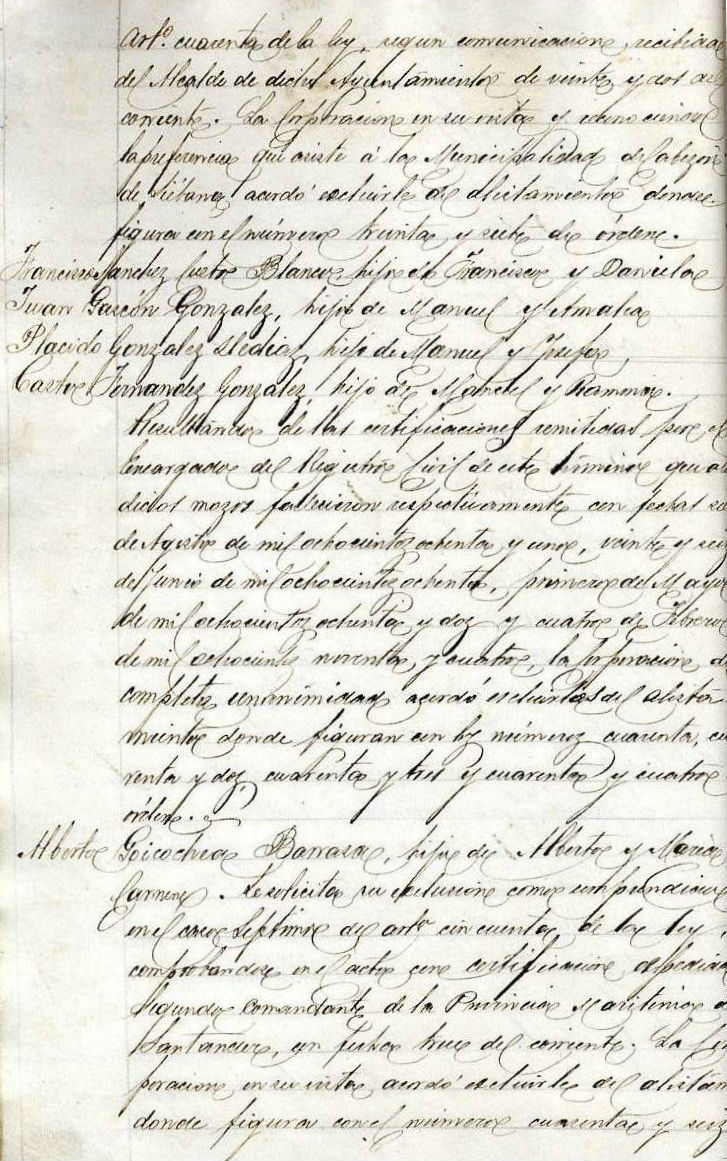 Artº. cuarenta de la ley, segun comunicacion, recibida
del Alcalde de dicho Ayuntamiento de veinte y dos del
corriente. La Corporacion en su vista y
la preferencia que asiste á la Municipalidad de Cabezon
de Liébana, acordó escluirle del alistamiento donde
figura con el número treinta y siete de órden.
Francisco Sanchez Castro Blanco, hijo de Francisco y Daniela
Juan Gascón Gonzalez, hijo de Manuel y Amalia
Placido Gonzalez hijo de Manuel y Josefa,
Castor Fernandez Gonzalez, hijo de Manuel y Ramona.
Resultando de las certificaciones remitidas por el
Encargado del Registro Civil de este término que
dichos mozos fallecieron respectivamente con fechas
de Agosto de mil ochocientos ochenta y uno, veinte y seis
de Junio de mil ochocientos ochenta, primero de Mayo
de mil ochocientos ochenta y dos y cuatro de Febrero
de mil ochocientos noventa y cuatro, la Corporacion de
completa unanimidad acordó escluirlos del alista
miento donde figuran con los números cuarenta, cua
renta y dos, cuarenta y tres y cuarenta y cuatro
órden.
Alberto Goicochea Barrasa, hijo de Alberto y Maria
Carmen. Se solicita su esclusion como comprendido
en el caso septimo del artº cincuenta de la ley,
comprobandose en el acto con certificacion espedida
Segundo Comandante de la Provincia Maritima de
Santander, con fecha trece del corriente. La Cor
poracion en su vista acordó escluirle del alistam
donde figura con el número cuarenta y seis